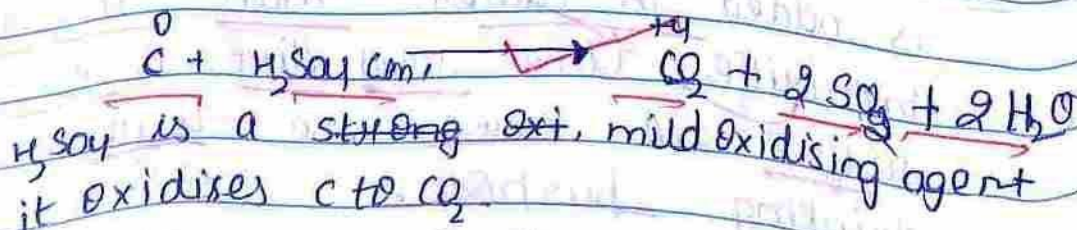 0 +4
C + H2SO4 con, → CO2 + 2SO2 + 2H2O
H2SO4 is a strong oxi, mild oxidising agent
it oxidises C to CO2